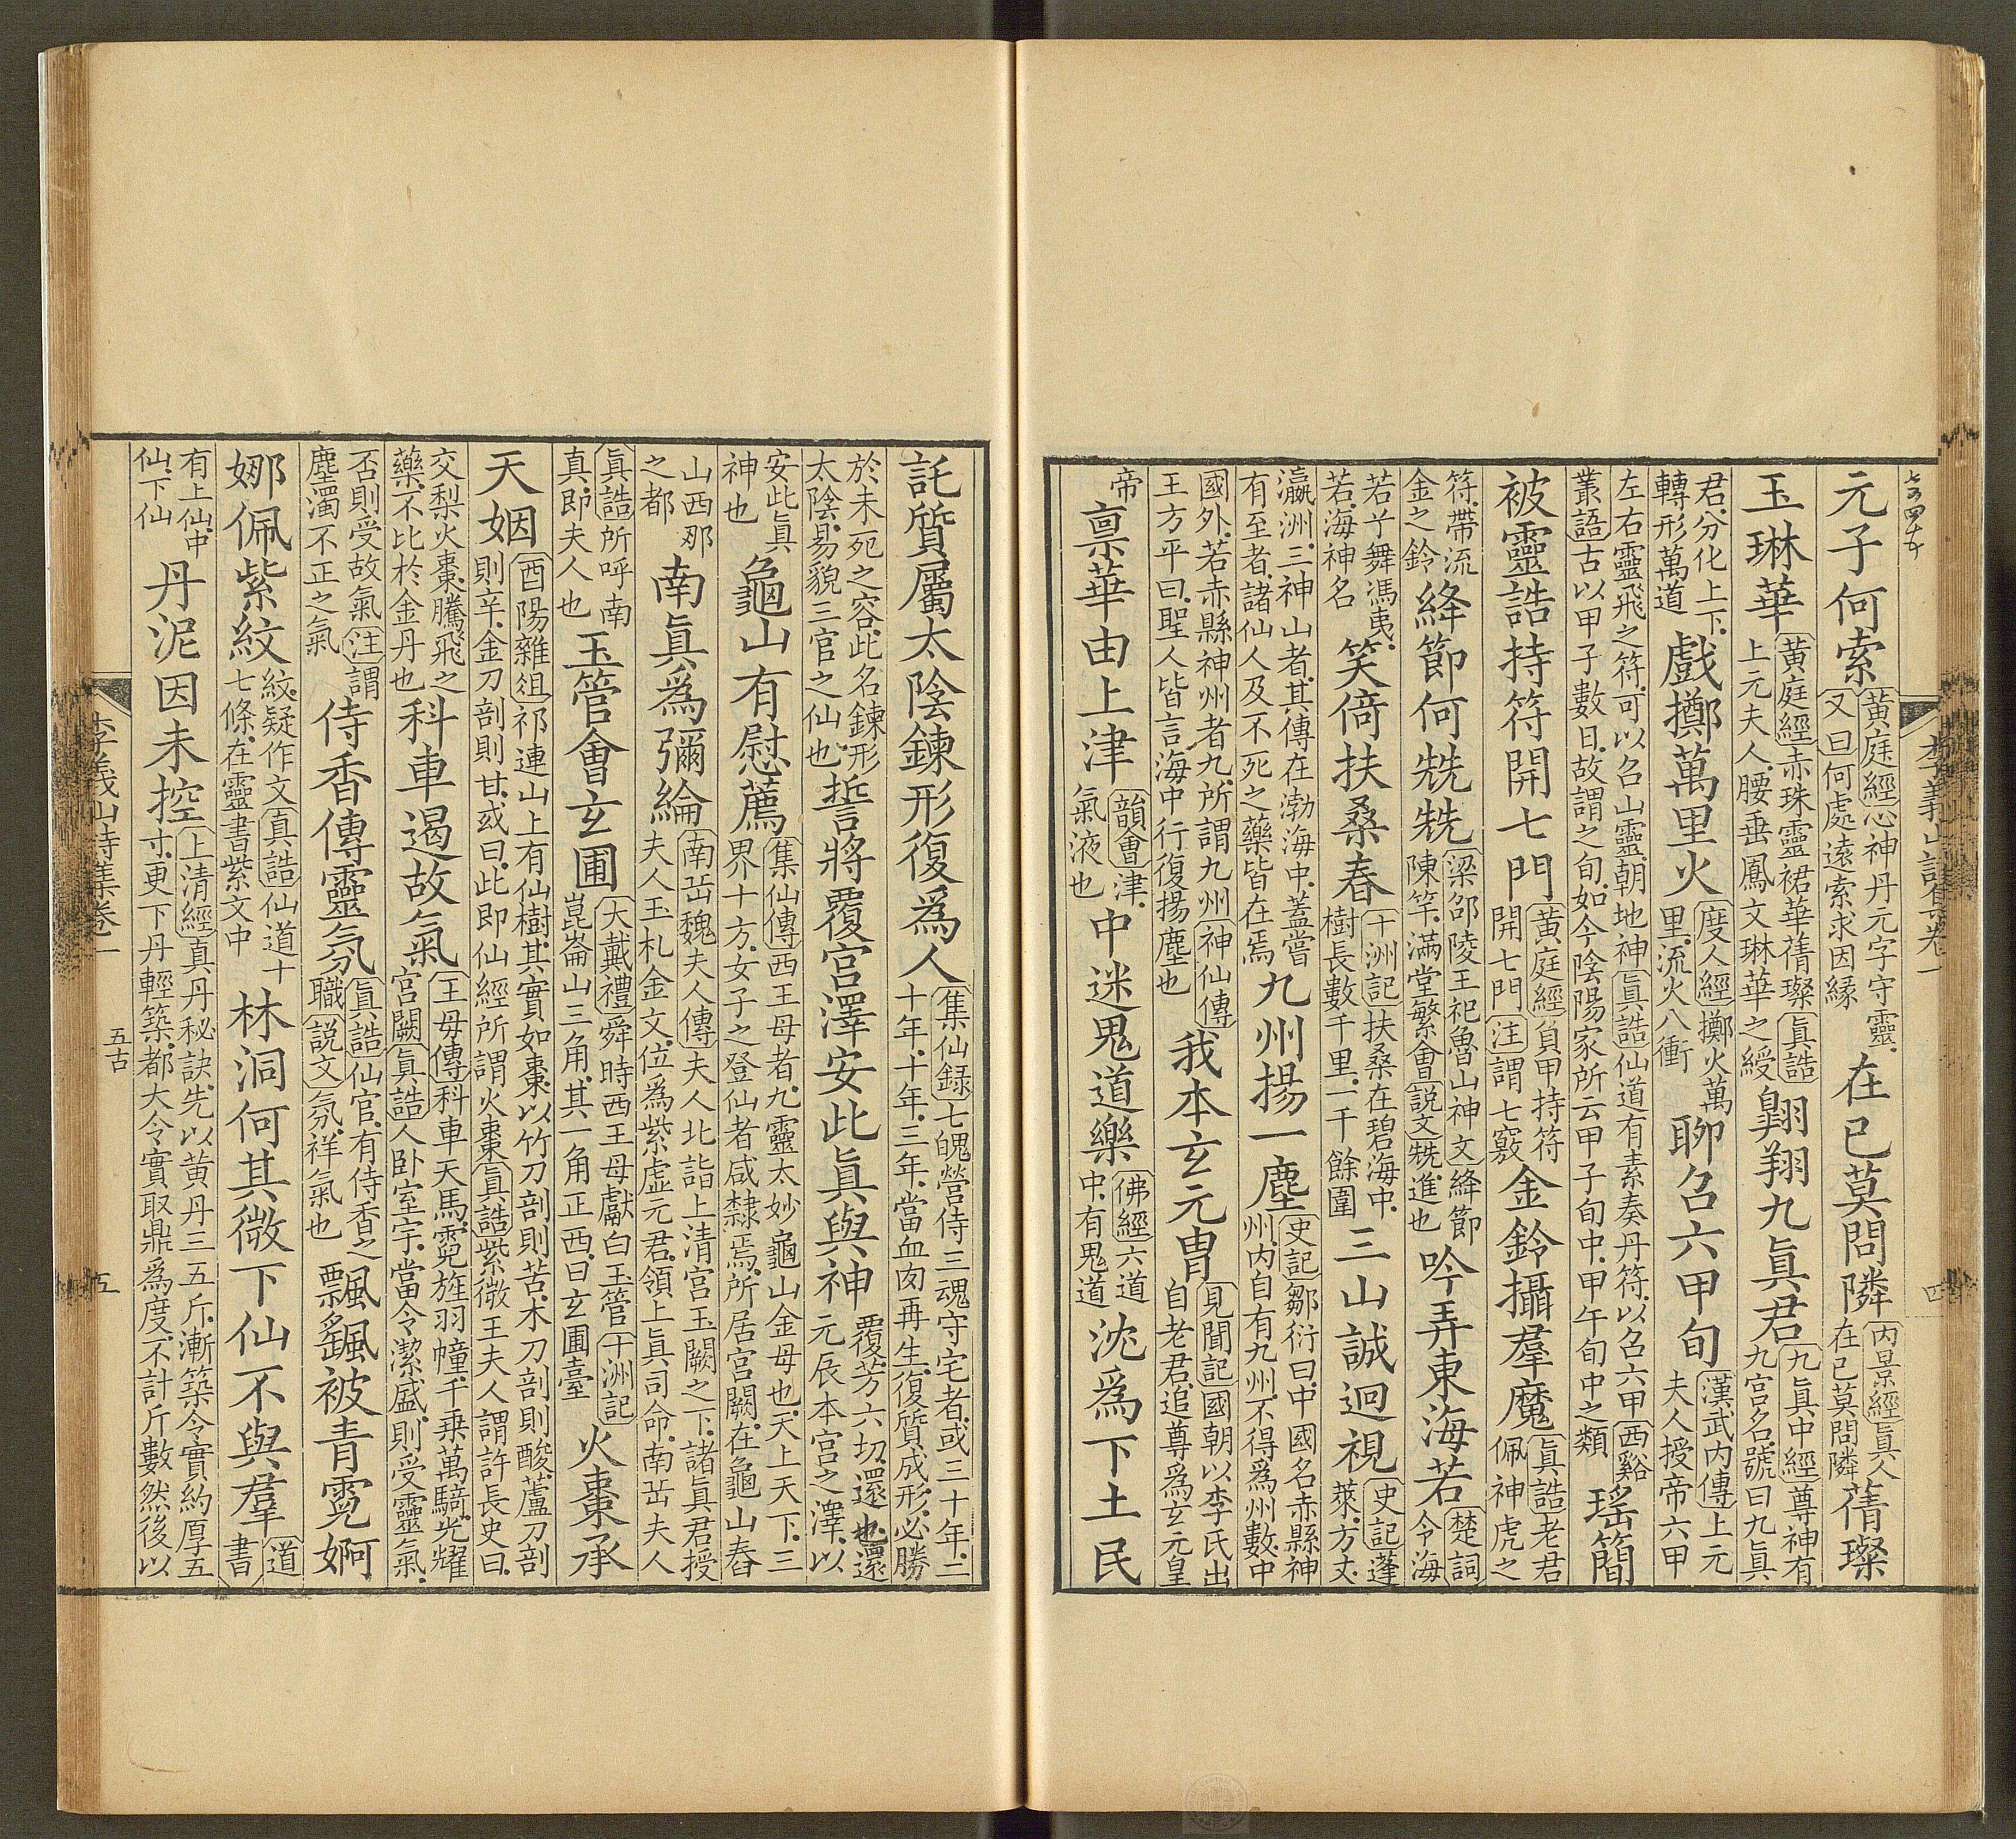 元子何索黃庭經心神丹元字守靈又曰何處遠索求因緣在己莫問隣內景經眞人在己莫問隣蒨璨
玉琳華黃庭經赤珠靈裙華蒨璨眞誥上元夫人腰垂鳳文琳華之綬翺翔九眞君九眞中經尊神有九宮名號曰九眞
君分化上下轉形萬道戲擲萬里火度人經擲火萬里流火八衝聊召六甲旬漢武內傳上元夫人授帝六甲
左右靈飛之符可以召山靈朝地神眞誥仙道有素奏丹符以召六甲西谿叢語古以甲子數日故謂之旬如今陰陽家所云甲子旬中甲午旬中之類瑤簡
被靈誥持符開七門黃庭經負甲持符開七門注謂七竅金鈴攝羣魔眞誥老君佩神虎之
符帶流金之鈴絳節何兟兟梁邵陵王祀魯山神文絳節陳竿滿堂繁會說文兟進也吟弄東海若楚詞令海
若兮舞馮夷若海神名笑倚扶桑春十洲記扶桑在碧海中樹長數千里一千餘圍三山誠迴視史記蓬萊方丈
瀛洲三神山者其傳在渤海中蓋嘗有至者諸仙人及不死之藥皆在焉九州揚一塵史記鄒衍曰中國名赤縣神州內自有九州不得爲州數中
國外若赤縣神州者九所謂九州神仙傳王方平曰聖人皆言海中行復揚塵也我本玄元冑見聞記國朝以李氏出自老君追尊爲玄元皇
帝稟華由上津韻會津氣液也中迷鬼道樂佛經六道中有鬼道沈爲下土民
託質屬太陰鍊形復爲人集仙録七魄營侍三魂守宅者或三十年二十年十年三年當血肉再生復質成形必勝
於未死之容此名鍊形太陰易貌三官之仙也誓將覆宮澤安此眞與神覆芳六切還也還元辰本宮之澤以
安此眞神也龜山有慰薦集仙傳西王母者九靈太妙龜山金母也天上天下三界十方女子之登仙者咸隸焉所居宮闕在龜山舂
山西那之都南眞爲彌綸南岳魏夫人傳夫人北詣上清宮玉闕之下諸眞君授夫人玉札金文位爲紫虛元君領上眞司命南岳夫人
眞誥所呼南真即夫人也玉管會玄圃大戴禮舜時西王母獻白玉管十洲記崑崙山三角其一角正西曰玄圃臺火棗承
天姻酉陽雜俎祁連山上有仙樹其實如棗以竹刀剖則苦木刀剖則酸蘆刀剖則辛金刀剖則甘或曰此即仙經所謂火棗眞誥紫微王夫人謂許長史曰
交梨火棗騰飛之藥不比於金丹也科車遏故氣王母傳科車天馬霓旌羽幢千乗萬騎光耀宮闕眞誥人卧室宇當令潔盛則受靈氣
否則受故氣注謂塵濁不正之氣侍香傳靈氛眞誥仙官有侍香之職說文氛祥氣也飄颻被青霓婀
娜佩紫紋紋疑作文真誥仙道十七條在靈書紫文中林洞何其微下仙不與羣道書
有上仙中仙下仙丹泥因未控上清經真丹秘訣先以黃丹三五斤漸築令實約厚五寸更下丹輕築都大令實取鼎爲度不計斤數然後以
李義山詩集卷一
四
李義山詩集卷一
五古
五